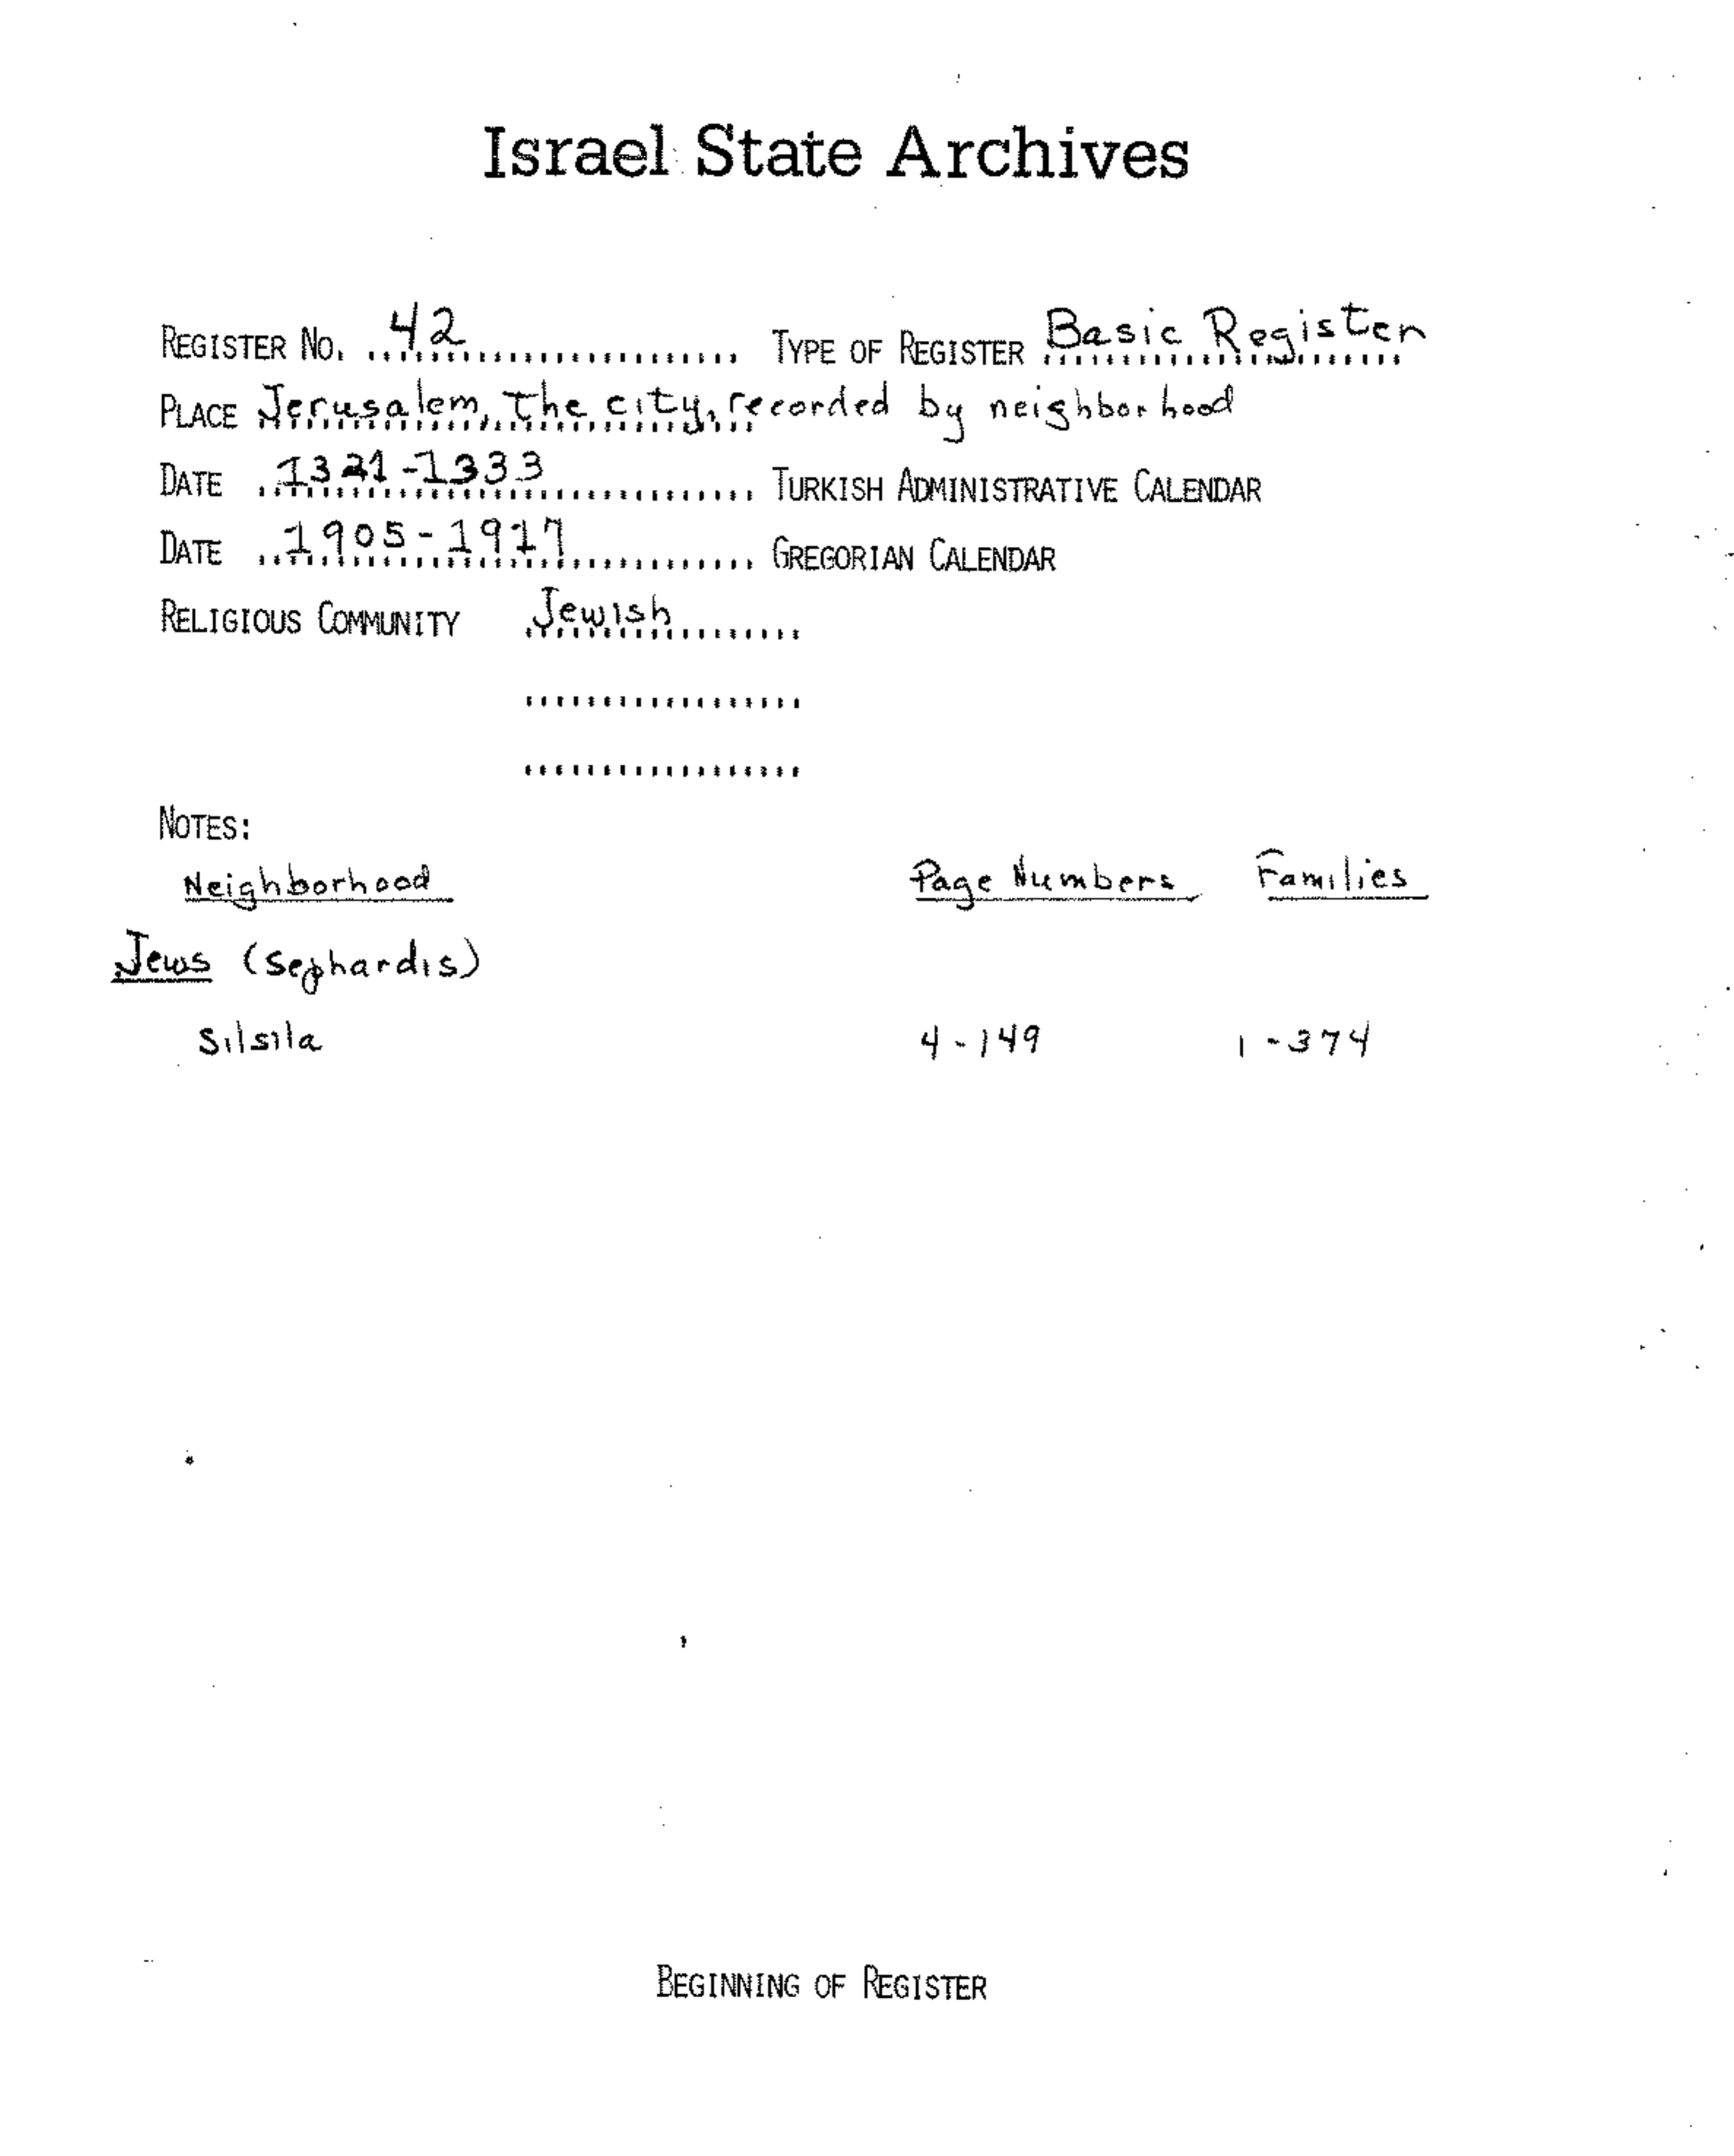 Israel State Archives
REGISTER NO. 42 TYPE OF REGISTER Basic Register
PLACE Jerusalem, the city, recorded by neighborhood
DATE 1321-1333 TURKISH ADMINISTRATIVE CALENDAR
DATE 1905-1917 GREGORIAN CALENDAR
RELIGIOUS COMMUNITY Jewish
NOTES:
Neighborhood Page Numbers Families
Jews (Sephardis)
Silsila 4-149 1-374
BEGINNING OF REGISTER